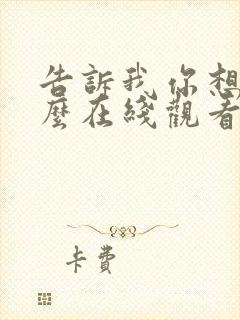 告訴我 你想
麼在綫觀看
卡費